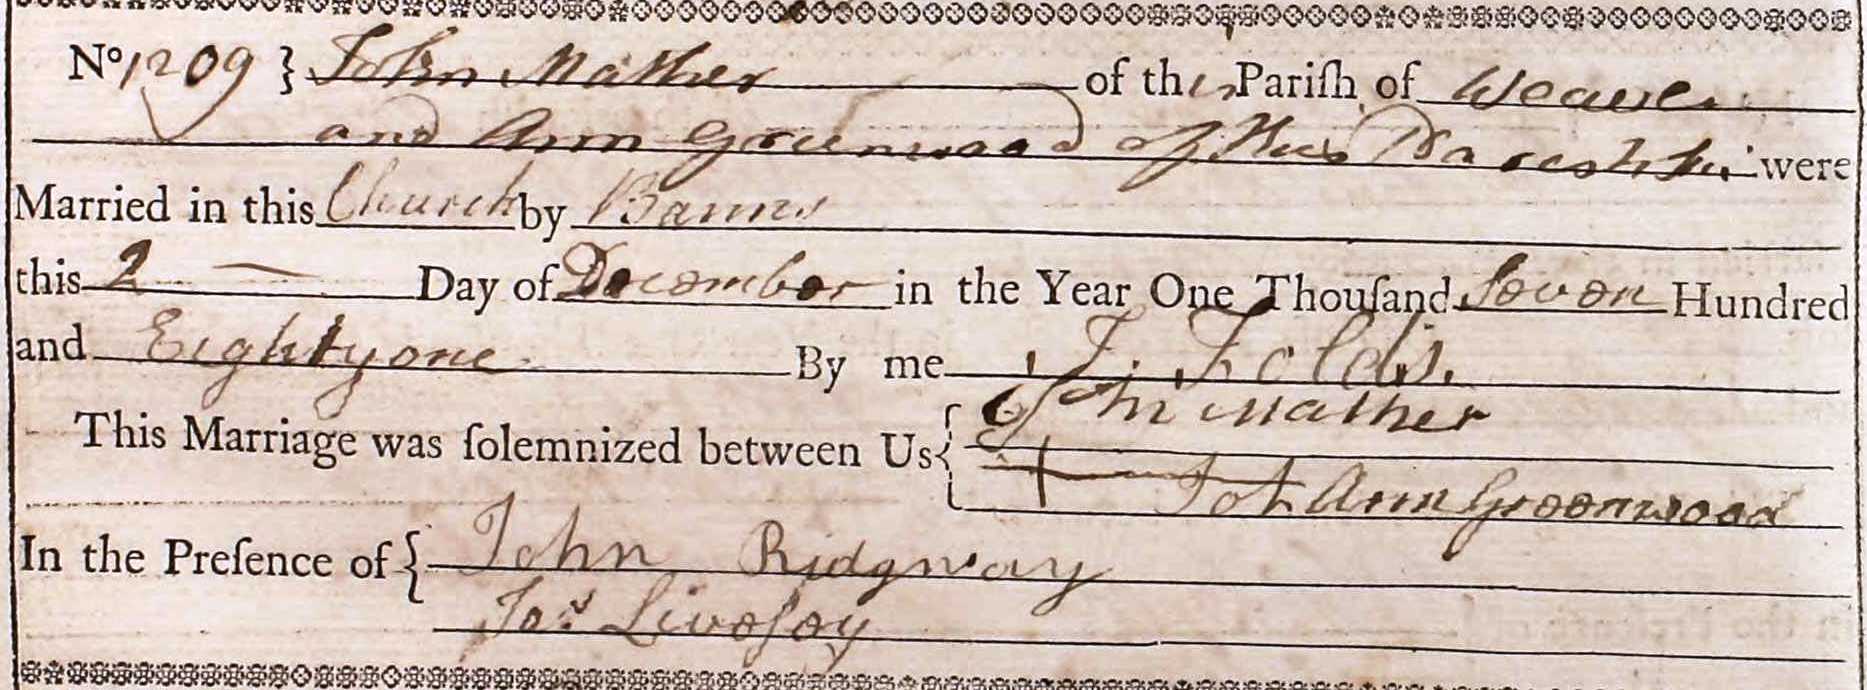 No 1209 } John Mather of this Pariſh of Weaver
and Ann Greenwood of this Parish were
Married in this Church by Banns
this 2 Day of December in the Year One Thouſand Seven Hundred
and Eighty one By me J. Folds.
John Mather
This Marriage was ſolemnized between Us {
+ Ann Greenwood
In the Preſence of { John Ridgway
Jos Liveſey